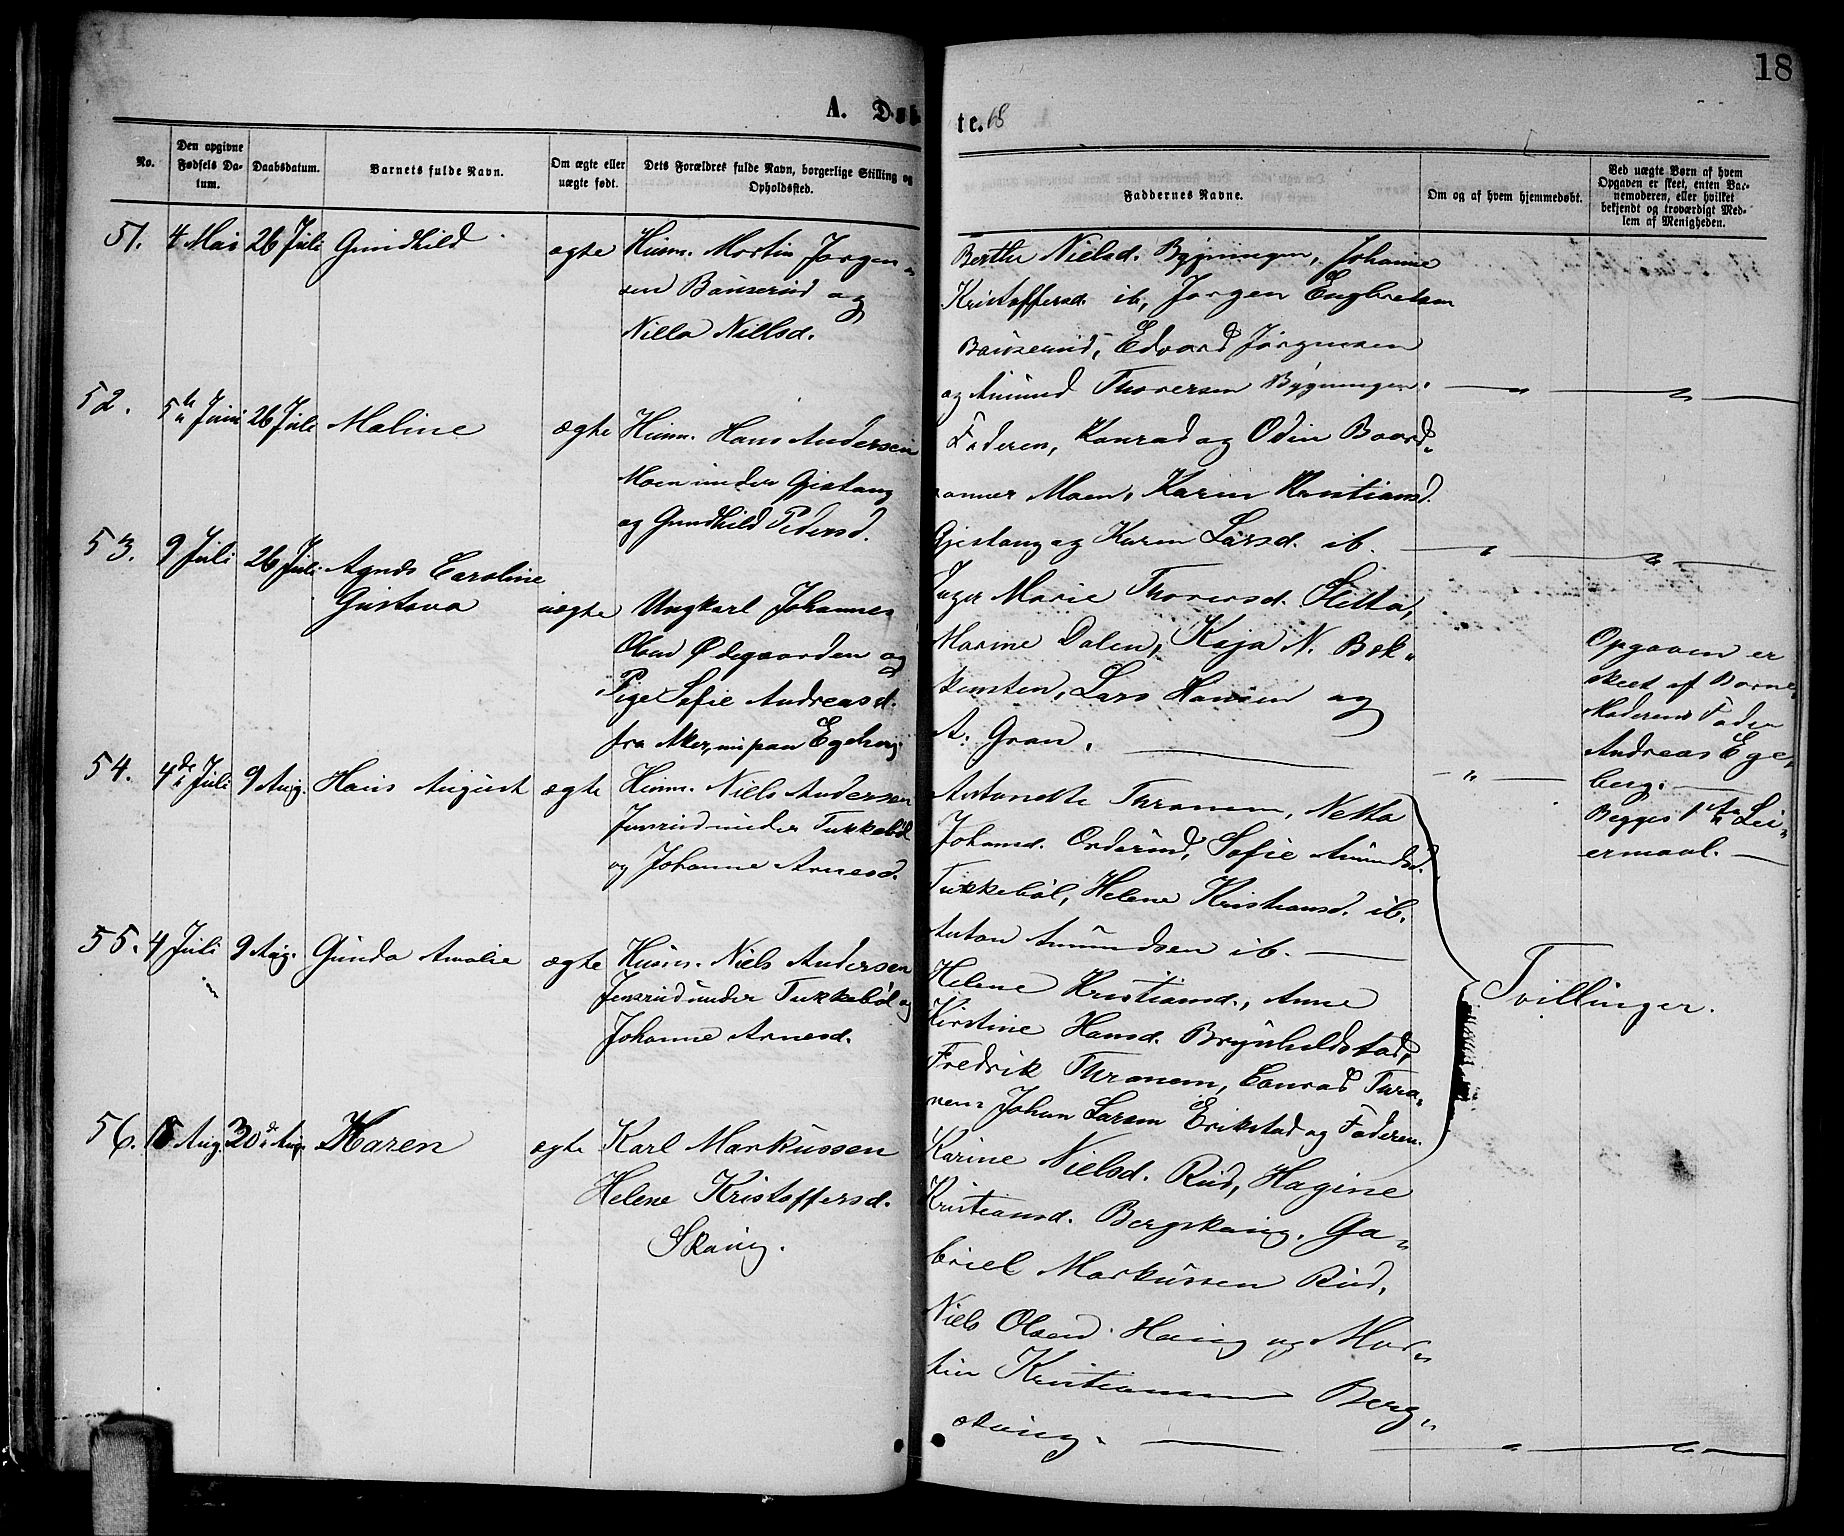 18
A. Døb
te. 68
No.
Den opgivne Fødsels Da-tum.
Daabsdatum.
Barnets fulde Navn.
Om ægte eller uægte født.
Dets Forældres fulde Navn, borgerlige Stilling og Opholdssted.
Faddernes Navne.
Om og af hvem hjemmedøbt.
Ved uægte Børn af hvem
Opgaven er skeet, enten Bar-
nemoderen, eller hvilket
bekjendt og troværdigt Med-
lem af Menigheden.
51. 4 Mai 26 Juli Gundhild ægte Huusm. Martin Jørgen-
sen Bauserud og
Nilla Nillsd.
Berthe Nielsd. Bygningen, Johanne
Kristoffersd. ib, Jørgen Engbretsen
Bauserud, Edvard Jørgensen
og Amund Thoresen Bygningen.
52. 5te Juni 26 Juli Maline ægte Huusm. Hans Andersen
Moen under Gjestang
og Gundhild Pedersd.
Faderen, Konrad og Odin Baard-
sønner Moen, Karin Kristiansd.
Gjestang og Karen Larsd. ib.
53. 9 Juli 26 Juli Agnes Caroline
Gustava uægte Ungkarl Johannes
Olsen Ødegaarden og
Pige Sofie Andreasd.
fra Aker, nu paa Egeberg.
Inger Marie Thoresd. Sletta,
Marine Dalen, Kaja N. Bek-
kensten, Lars Hansen og
A. Gran.
Opgaven er
skeet af Barne-
moderens Fader
Andreas Ege-
berg.
Begges 1ste Lei-
ermaal.
54. 4de Juli 9 Aug. Hans August ægte Huusm. Niels Andersen
Jensrud under Tukkebøl
og Johanne Arnesd.
Antonette Thranem, Netta
Johansd. Orderud, Sofie Amundsd.
Tukkebøl, Helene Kristiansd. ib.
Anton Amundsen ib.
55. 4 Juli 9 Aug. Gunda Amalie ægte Huusm. Niels Andersen
Jensrud under Tukkebøl og
Johanne Arnesd.
Helene Kristiansd., Anne
Kirstine Hansd. Brynhildstad,
Fredrik Thranem, Conrad Thra-
nem, Johan Larsen Erikstad og Faderen.
Tvillinger.
56. 15 Aug. 30de Aug. Karen ægte Karl Markussen
Helene Kristoffersd.
Skaug.
Karine Nielsd. Rud, Hagine
Kristiansd. Bergskaug, Ga-
briel Markussen Rud,
Niels Olsen Haug og Mar-
tin Kristiansen Berg-
skaug.